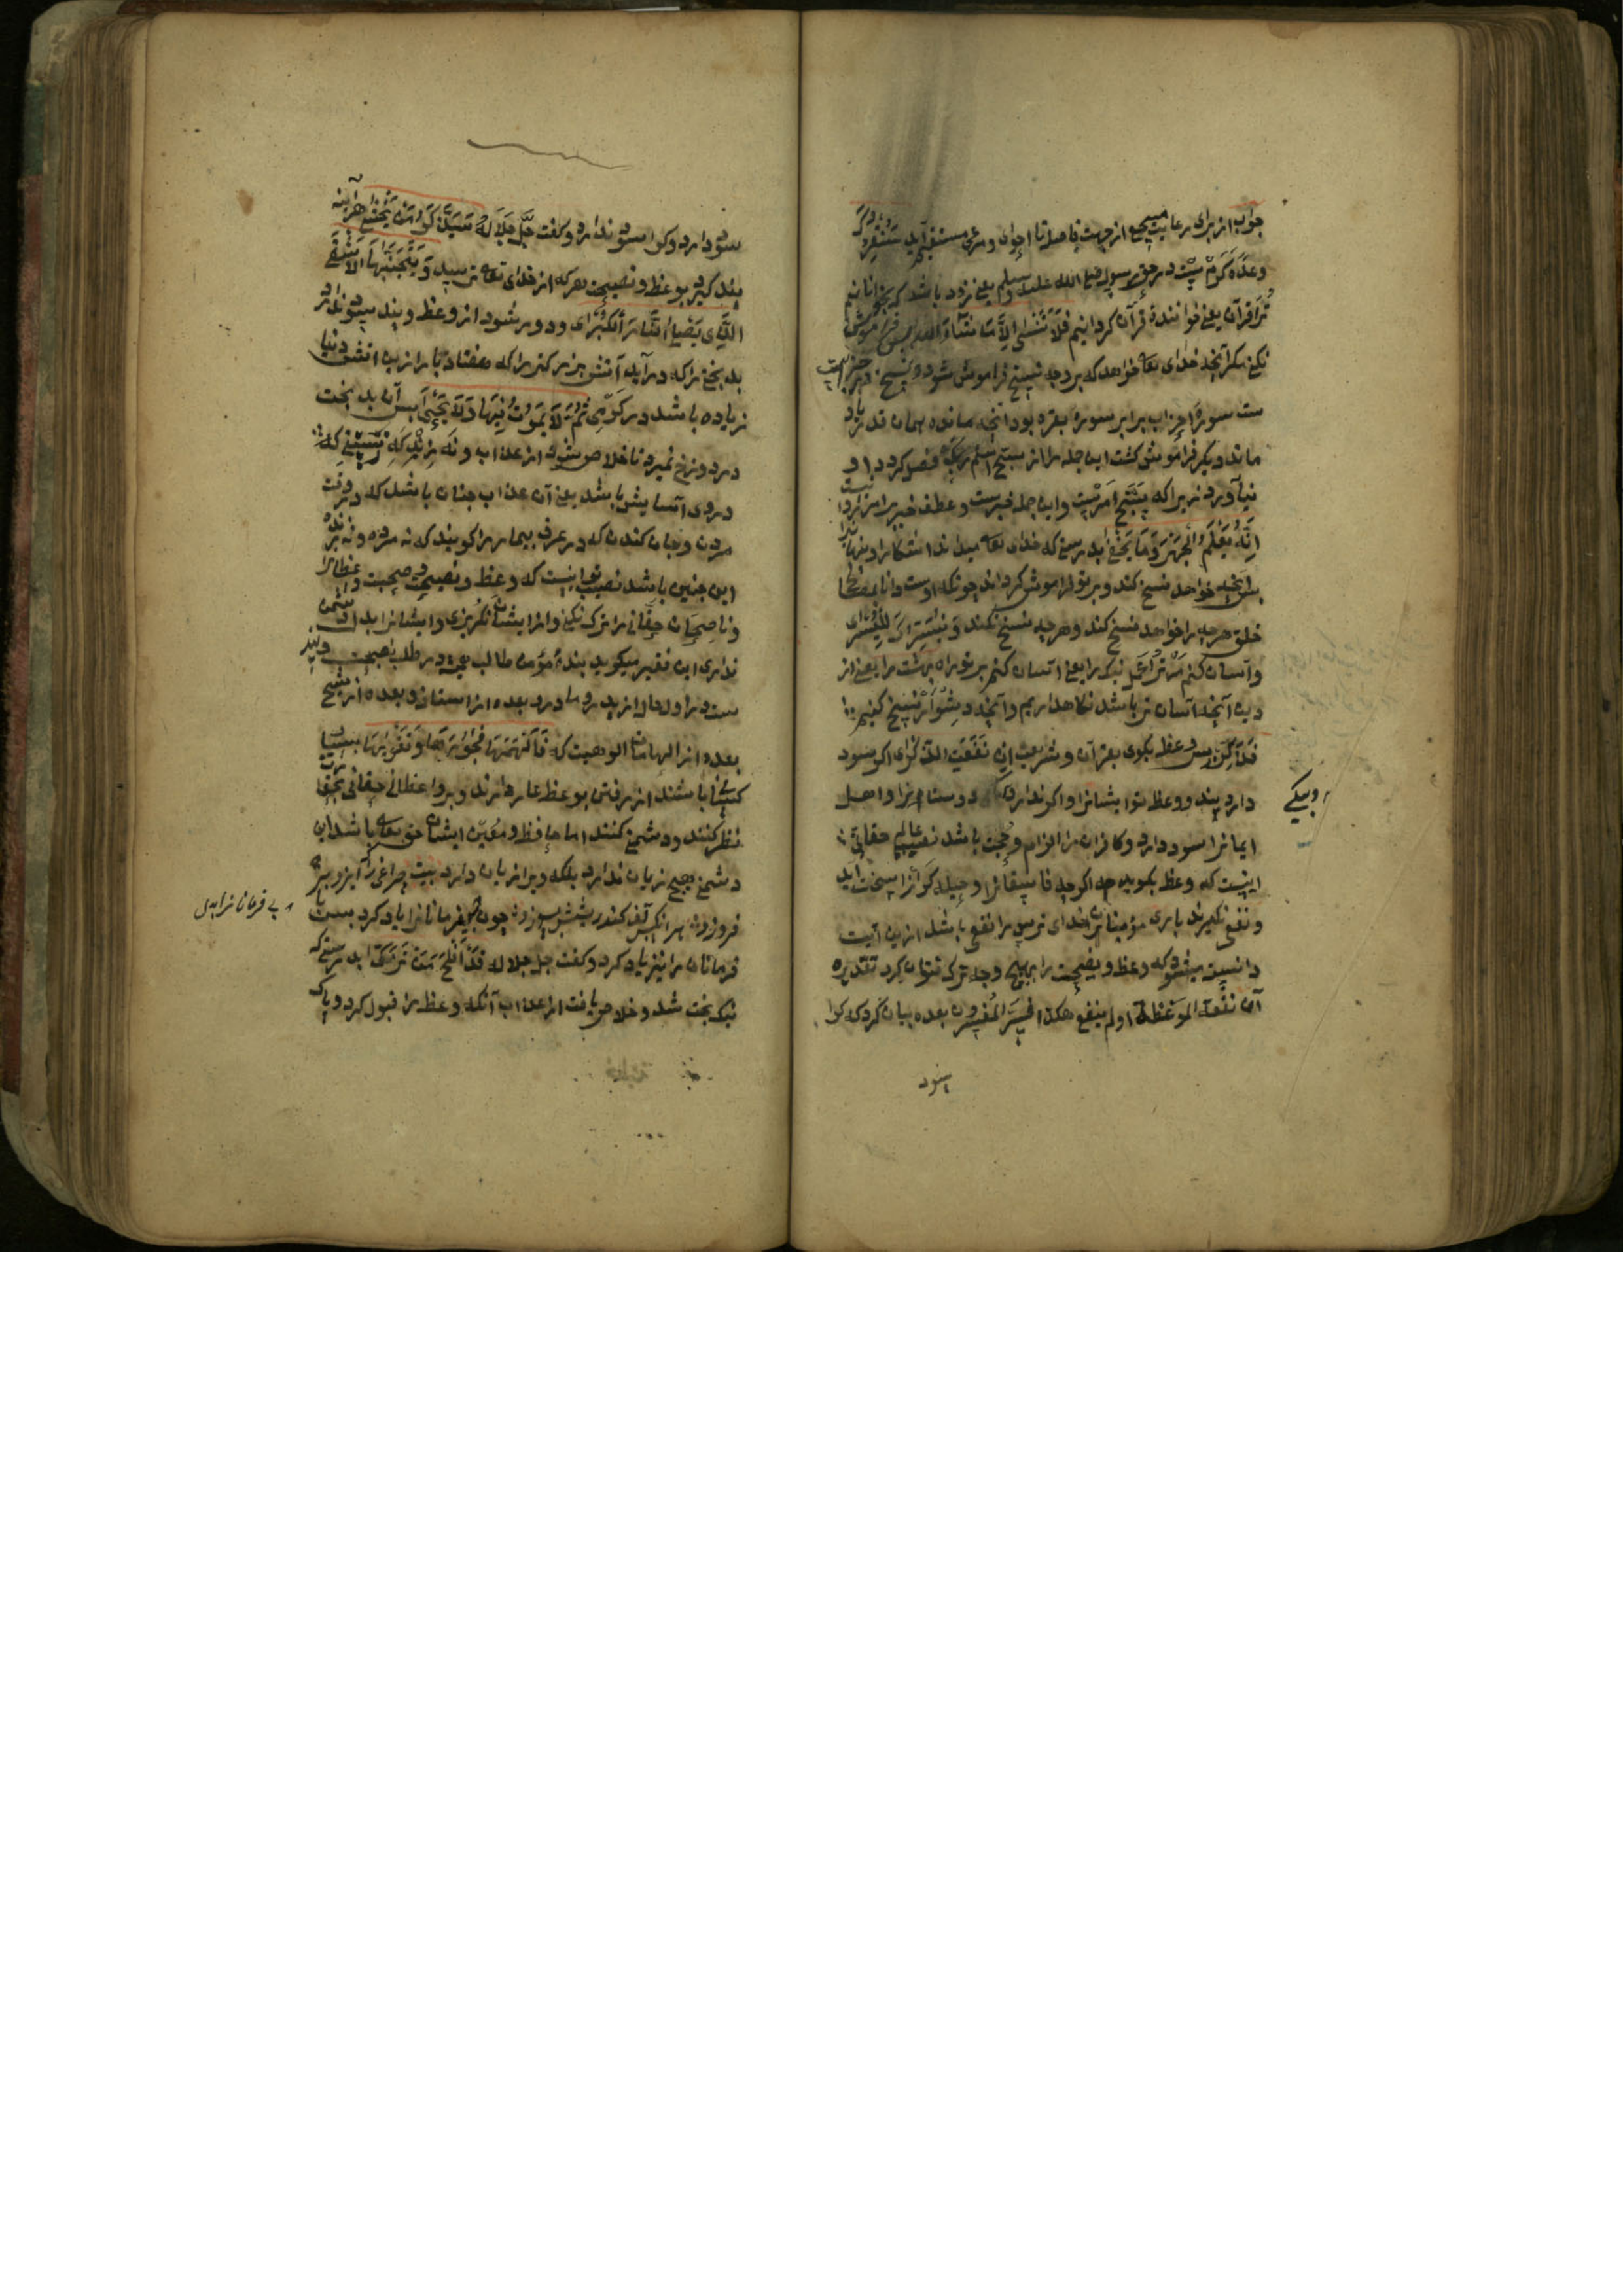 جواب از برای رعایت سجع از جهت فاصلها
وعدهٔ کرم است در حق رسول صلی الله علیه وسلم یعنی زود باشد که بخوانانیم
ترا قرآن یعنی خوانندهٔ قرآن کردانیم فَلَا تَنْسَى إِلَّا مَا شَاءَ اللَّهُ پس فراموش
نکنی مکر آنچه خدای تعالی خواهد که بر وجه نسخ فراموش شود
ست سورهٔ احزاب برابر سورهٔ بقره بود آنچه مانده همان قدر یاد
ماند دیکر فراموش کشت این جمله را از سبح اسم ربک فصل کرد و او
نیاورد زیرا که سَبِّح امرست و این جمله خبرست و عطف خبر بر امر روا نیست
إِنَّهُ يَعْلَمُ الْجَهْرَ وَمَا يَخْفَى بدرستی که خدای تعالی میداند آشکارا و پنهانرا
پس آنچه خواهد نسخ کند و بر تو فراموش کرداند چونکه اوست دانا بمصلحت
خلق هرچه را خواهد نسخ کند و هرچه نسخ نکند وَنُيَسِّرُكَ لِلْيُسْرَى
و آسان کنیم مر ترا عمل نیک را یعنی آسان کنیم بر تو راه بهشت را یعنی از
دین آنچه آسان تر باشد نکاهداریم و آنچه دشوارتر نسخ کنیم
فَذَكِّرْ پس وعظ بکوی بقرآن و شریعت إِنْ نَفَعَتِ الذِّكْرَى اکر سود
دارد پند و وعظ تو ایشانرا و اکر ندارد دوستانرا و اهل
ایمانرا سود دارد و کافران را الزام و حجت باشد نصیب عالم حقانی
اینست که وعظ بکوید اکرچه فاسقانرا سخت آید
و نفع نکیرند باری مؤمنان خدای ترس را نفع باشد ازین آیت
دانسته میشود که وعظ و نصیحت را بهیچ وجه ترک نتوان کرد تقدیره
ان نفعت الموعظة او لم ینفع هکذا فسر المفسرون بعده بیان کرد که کرا
سود
سود دارد و کرا سود ندارد و کفت جل جلاله سَيَذَّكَّرُ مَنْ يَخْشَى هرآینه
پند کیرد بوعظ و نصیحت هر که از خدای تعالی ترسد وَيَتَجَنَّبُهَا الْأَشْقَى
الَّذِي يَصْلَى النَّارَ الْكُبْرَى و دور شود از وعظ و پند
بدبختی را که درآید آتش بزرکتر را که هفتاد بار ازین آتش دنیا
زیاده باشد در کرمی ثُمَّ لَا يَمُوتُ فِيهَا وَلَا يَحْيَى پس آن بدبخت
در دوزخ نمیرد تا خلاص شود از عذاب و نه زید
در وی آسایش باشد یعنی آن عذاب چنان باشد که در وقت
مردن و جان کندن که در عرف بیمار را کویند که نه مرده و نه زنده
این چنین باشد نصیب تو اینست که وعظ و نصیحت و صحبت واعظانرا
و ناصحان حقانی را ترک نکنی و از ایشان نکریزی و ایشانرا بد و دشمن
نداری این فقیر میکوید بندهٔ مؤمن طالب در طلب نصیحت و پند
ست در اول حال از پدر و مادر و بعده از استاذ و بعده از شیخ
بعده از الهامات الوهیت که فَأَلْهَمَهَا فُجُورَهَا وَتَقْوَاهَا بسیار
کسی باشند از رفتن بوعظ عار دارند و بر واعظان حقانی بحقارت
نظر کنند و دشمنی کنند اما حافظ و معین ایشان حق تعالی باشد این
دشمنی هیچ زیان ندارد بلکه ویرا زیان دارد بیت چراغی را که ایزد بر
فروزد هر آنکس تف کند ریشش بسوزد چون بیفرمانانرا یاد کرد
فرمانان را نیز یاد کرد و کفت جل جلاله قَدْ أَفْلَحَ مَنْ تَزَكَّى بدرستی که
نیک بخت شد و خلاص یافت از عذاب آنکه وعظ را قبول کرد و پاک